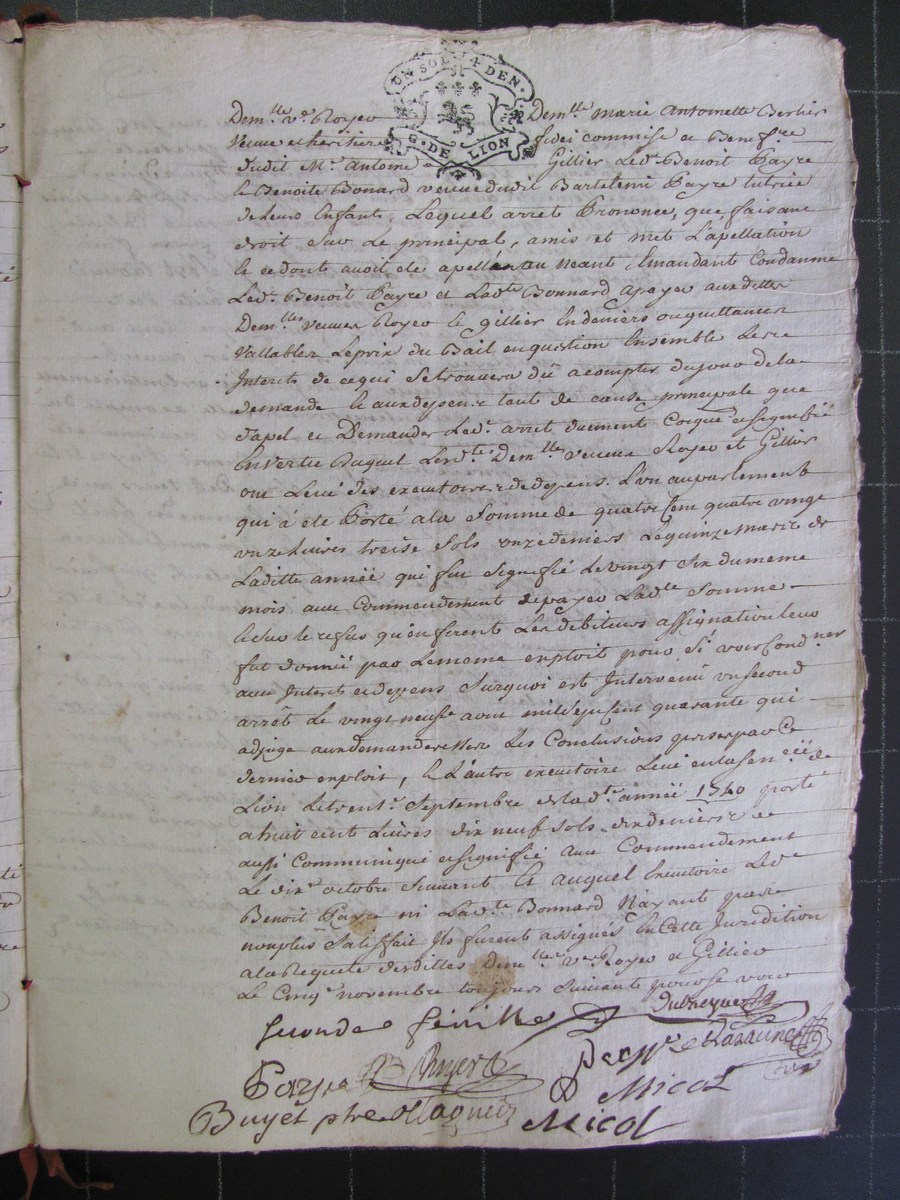 UN SOL 4 DEN.
G. DE LION
Dem.lle v.e Royer Dem.lle marie Antoinette Berlier
Veuve et heritiere fidei commise et Benef.re
dudit M.r Antoine Gillier Led.t Benoit Payre
et Benoite Bonard veuve dudit Bartelemi Payre tutrice
de leurs Enfants, Lequel arret Prononce, que faisant
droit sur Le principal, a mis et met L'apellation
et ce dont avoit ete apellé au neant, Emandant Condanne
Led.t Benoit Payre et Lad.te Bonnard a payer aux dittes
Dem.lles veuves Royer et Gillier En deniers ou quittances
Vallables Le prix du Bail en question Ensemble Les
Interets de ce qui Se trouvera dü a compter du jour de la
demande et aux depens tant de cause principale que
d'apel et Demandes Led.t arret duement
En vertu Duquel Lesd.tes Dem.lles veuves Royer et Gillier
ont Levé des executoires de depens. L'un au parlement
qui à ete Porté a la Somme de quatre Cent quatre vingt
onze Livres treise Sols onze deniers Le quinze Mars de
Laditte année qui fut Signifié Le vingt Six du meme
mois avec Commendement de payer Lad.te Somme
et sur le refus qu'en firent Les debiteurs assignation leur
fut donnée par Le meme exploit pour S'i voir Cond.ner
aux Interets et depens Surquoi est Intervenü un Second
arrêt Le vingt neuf aout mil Sept Cent quarante qui
adjuge aux demanderesses Les Conclusions prises par Ce
dernier exploit, et L'autre executoire Levé en la Sen.ceé de
Lion Le trent.e Septembre de la d.te année 1740 porté
a huit cent Livres dix neuf Sols dix deniers et
aussi Communiqué et signifié avec Commendement
Le dix.e octobre Suivant et auquel Executoire Led.t
Benoit Payre ni Lad.te Bonnard N'ayant
non plus Satisfait Ils furent assignés En Cette Juridition
a la Requete desdittes Dem.lles v.es Royer et Gillier
Le Cinq.e novembre toujours Suivant pour se voir
seconde feuille
Payre
Buyet ptre
Micol
Micol